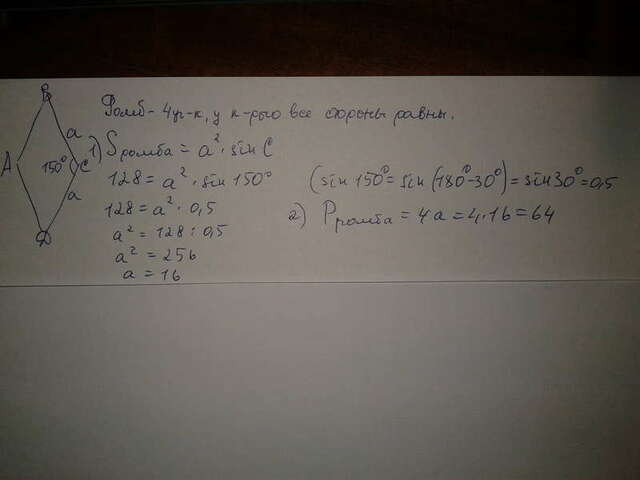 Ромб - 4уг-к, у к-рого все стороны равны.
B
A
150°
C
a
a
D
1) Sромба = a² · sin C
128 = a² · sin 150°
128 = a² · 0,5
a² = 128 : 0,5
a² = 256
a = 16
(sin 150° = sin (180° - 30°) = sin 30° = 0,5
2) Pромба = 4a = 4 · 16 = 64